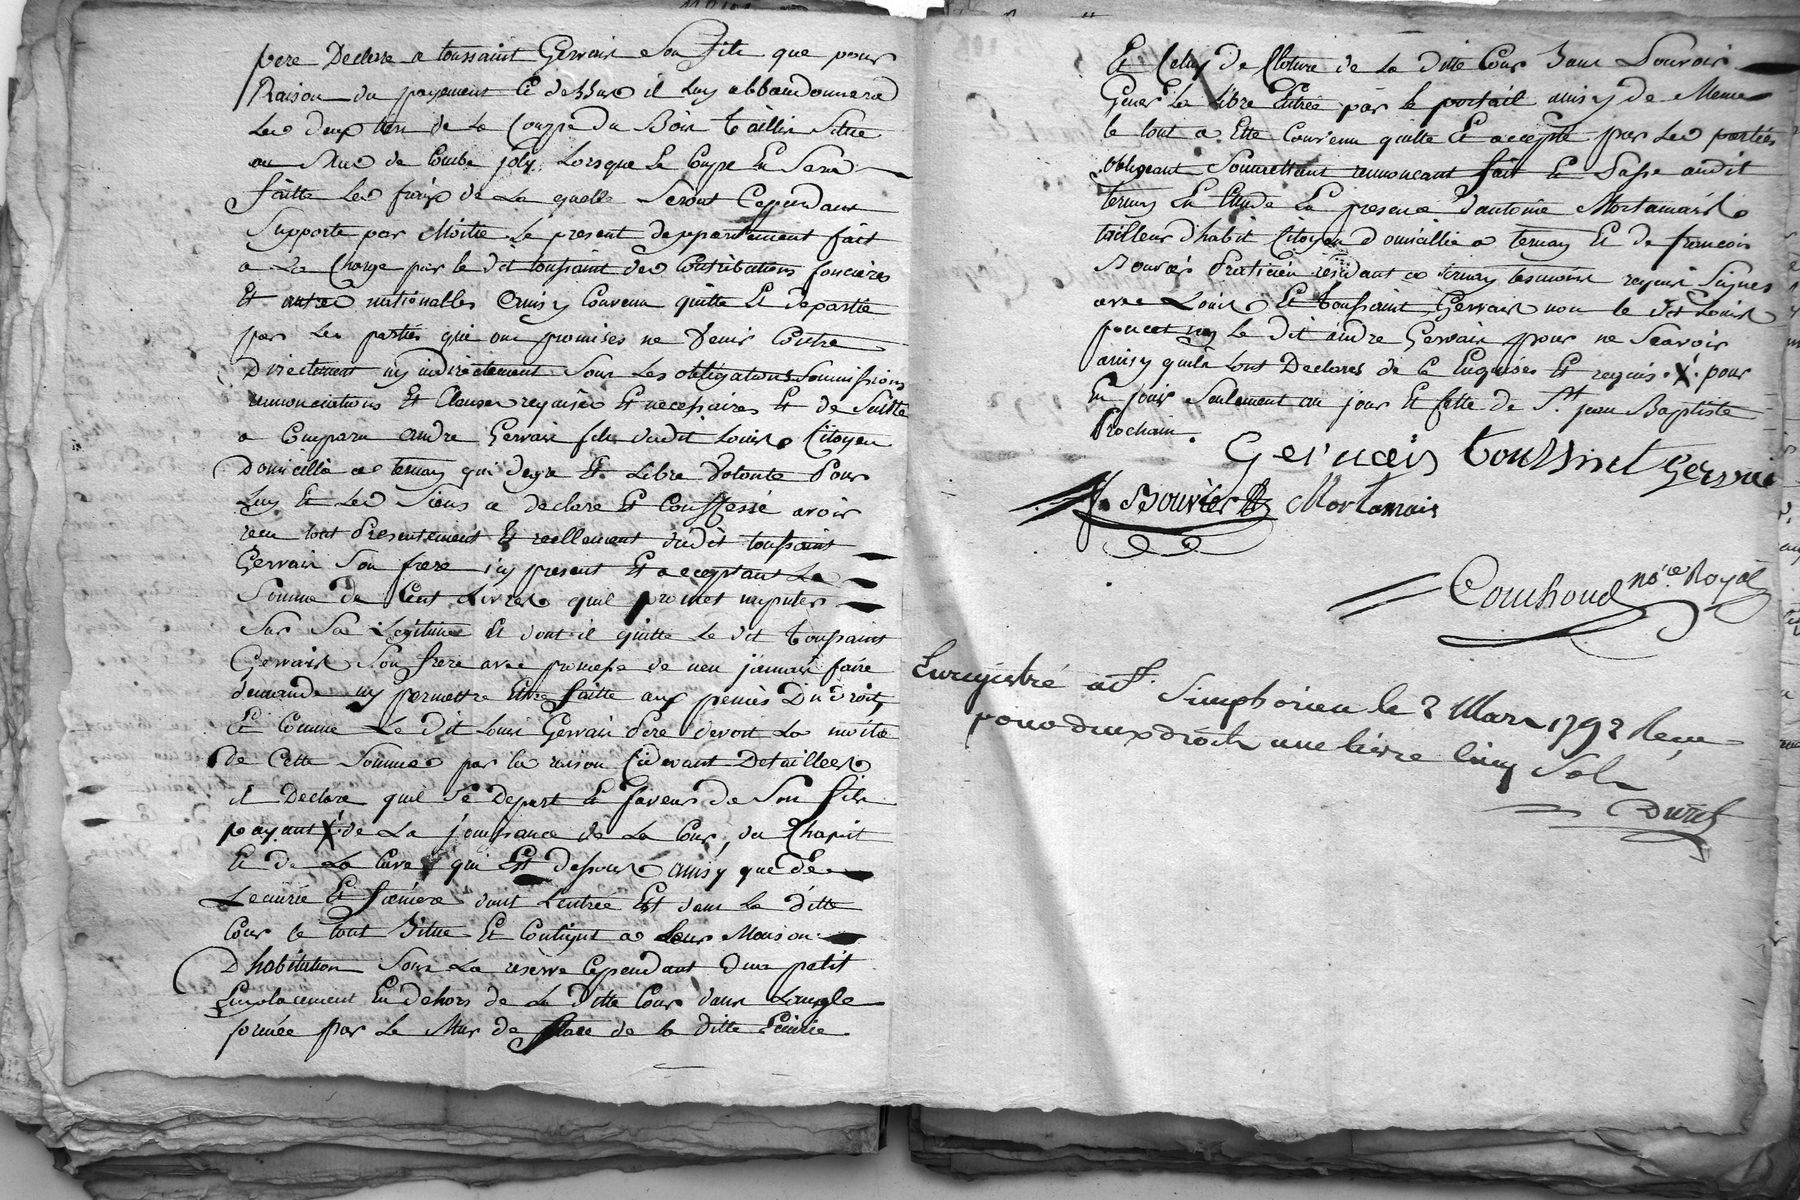 pere Declare a toussaint Gervais Son fils que pour
Raison du payement Cÿ dessus il luy abbandonnera
Les deux tiers de La Couppe du Bois taillis Situé
au de Combe joly. Lorsque La Coupe En Sera
faitte Les fraix de La quelle Seront Cependant
Supporté par Moitié Le present departement fait
a La Charge par le dit toussaint des Contributions foncieres
Et autres nationalles ainsy Convenu quitté Et departie
par Les parties qui ont promises ne Venir Contre
Directement ny indirectement Sous Les obligations Soumissions
renonciations Et Clauses requises Et necessaires Et de Suitte
a Comparu andre Gervais fils dudit Louis Citoyen
Domicillié a ternay qui de gré Et Libre Volonté Pour
Luy Et Les Siens a declaré Et Confessé avoir
recu tout Presentement Et reellement dudit toussaint
Gervais Son frere icy present Et acceptant La
Somme de Cent Livres quil promet imputer
Sur Sa Legitime Et dont il quitte Le dit toussaint
Gervais Son frere avec promesse de nen jamais faire
demande ny permettre Etre faitte aux peines Du droit,
Et Comme Le dit Louis Gervais Pere devoit La moitié
de Cette Somme par les raison Cidevant Detaillees
il Declare quil Se depart En faveur de Son fils
payant X de La jouissance de La Cour, du Chapit
Et de La Cave qui Est dessous ainsy que de
Lecurie Et feniere dont Lentrée Est dans La ditte
Cour le tout Situé Et Contigut a Leur Maison
Dhabitation Sous La reserve Cependant dun petit
Emplacement En dehors de La Ditte Cour dans Langle
formée par Le Mur de face de la ditte Ecurie
Et Celuy de Cloture de La ditte Cour Sans Pouvoir
Gener La Libre Entrée par le portail ainsy de Meme
le tout a Ette Convenu quitté Et accepté par Les parties
obligeant Soumettant renoncant fait Et Passé audit
ternay En Etude En presence dantoine Mortamais
tailleur d'habit Citoyen domicillié a ternay Et de francois
Bouvier Praticien residant a ternay tesmoins requis Signes
avec Louis Et toussaint Gervais non le dit Louis
poncet ny Le dit andre Gervais pour ne Scavoir
ainsy quils Lont Declarés de ce Enquises Et requis. X. pour
En jouir Seulement au jour Et fette de St. jean Baptiste
Prochain.
Gervais toussint Gervai
f. Bouvier Mortamais
Couchoud nore Royal
Enregistré a St. Simphorien le 2 Mars 1792 Reçu
pour deux droits une livre cinq Sols
Duret